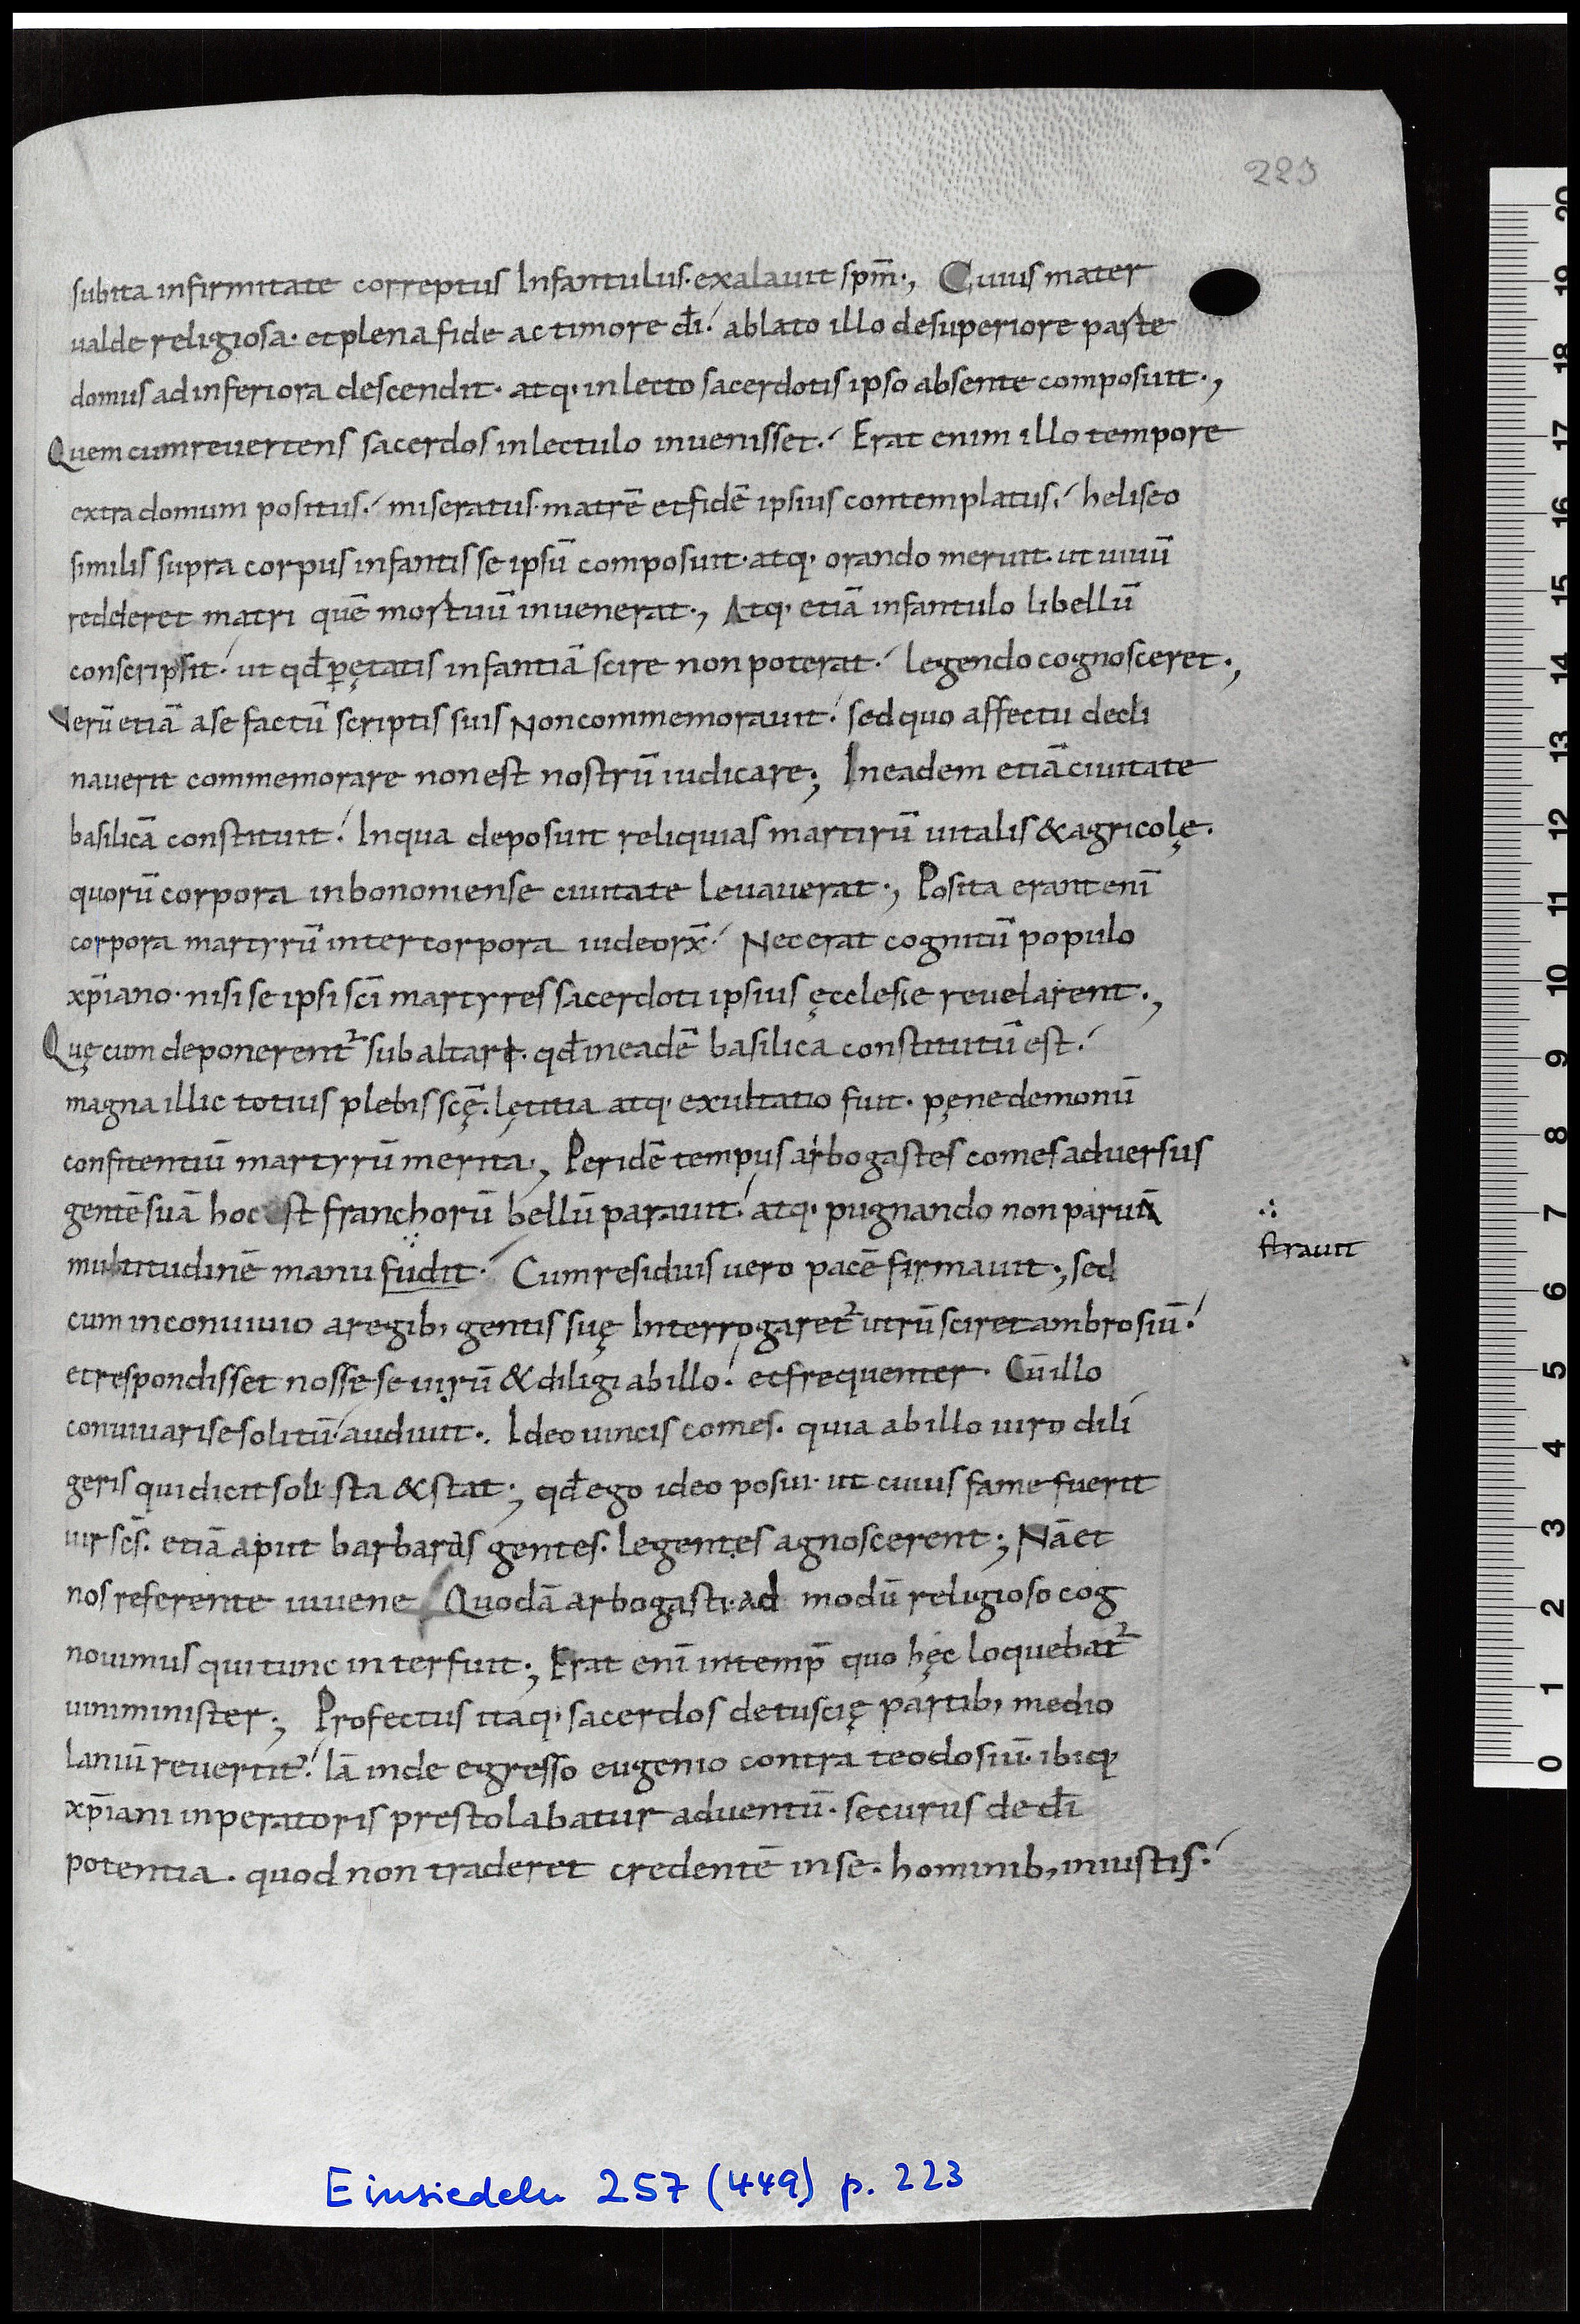 223
subita infirmitate correptus Infantulus· exalauit sp̄m·, Cuius mater
ualde religiosa· et plena fide ac timore dī·́ ablato illo desuperiore parte
domus ad inferiora descendit· atq· in lecto sacerdotis ipso absente composuit·,
Quem cum reuertens sacerdos in lectulo inuenisset·́ Erat enim illo tempore
extra domum positus·́ miseratus· matrē et fidē ipsius contemplatus·́ heliseo
similis supra corpus infantis se ipsū composuit· atq· orando meruit· ut uiuū
redderet matri quē mortuū inuenerat·, Atq· etiā infantulo libellū
conscripsit·́ ut qđ p̱ ętatis infantiā scire non poterat·́ legendo cognosceret·,
Verū etiā a se factū scriptis suis Non commemorauit·́ sed quo affectu decli
nauerit commemorare non est nostrū iudicare; In eadem etiā ciuitate
basilicā constituit·́ In qua deposuit reliquias martirū uitalis & agricolę·
quorū corpora in bononiense ciuitate leuauerat·, Posita erant enī
corpora martyrū inter corpora iudeorꝝ·́ Nec erat cognitū populo
xp̄iano· nisi se ipsi scī martyres sacerdoti ipsius ęcclesie reuelarent·,
Quę cum deponerent᷑ sub altari· qđ in eadē basilica constitutū est·́
magna illic totius plebis scę̄· lętitia atq· exultatio fuit· pęne demonū
confitentiū martyrū merita·, Per idē tempus arbogastes comes aduersus
gentē suā hoc est franchorū bellū parauit·́ atq· pugnando non paruā
∴
strauit
multitudinē manu fudit·́ Cum residuis uero pacē firmauit·, sed
cum in conuiuio a regib, gentis suę Interrogaret᷑ utrū sciret ambrosiū·́
et respondisset nosse se uirū & diligi ab illo·́ et frequenter· Cū illo
conuiuari se solitū·́ audiuit·. Ideo uincis comes· quia ab illo uiro dili
geris qui dicit soli sta & stat·, qđ ego ideo posui· ut cuius fame fuerit
uir scs̄· etiā aput barbaras gentes· legentes agnoscerent; Nā et
nos referente iuuene Quodā arbogasti· ad modū religioso cog
nouimus qui tunc interfuit·, Erat enī in temp̄ quo hęc loquebat᷑
uini minister·, Profectus itaq· sacerdos de tuscię partib, medio
laniū reuertit᷑·́ Iā inde egresso eugenio contra teodosiū· ibiq·
xp̄iani inperatoris prestolabatur aduentū· securus de dī
potentia· quod non traderet credentē in se· hominib, iniustis·́
Einsiedeln 257 (449) p. 223
0 1 2 3 4 5 6 7 8 9 10 11 12 13 14 15 16 17 18 19 20